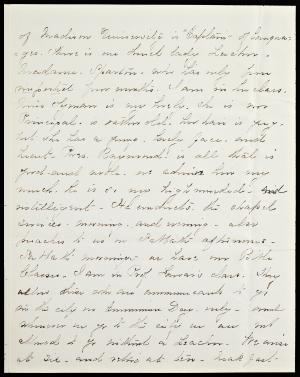 of Madison University is "Captain" of Langua-
ges. There is one French lady teacher -
Madame
imported four months. I am in her class.
Miss Lyman is our
Principal, is rather old, her hair is gray -
but she has a young, lovely face, and
heart. Pres. Raymond is all that is
good and noble. we admire him very
much. He is so very high minded and
intelligent - He conducts the chapel
services - morning and evening - also
preaches to us on Sabbath afternoons -
Sabbath mornings we have our Bible
Classes - I am in Prof. class. They
allow those who are communicants to go
in the city on Communion Day, only - and
whenever we go to the city we are not
allowed to go without a teacher. We arise
at six - and retire at ten - breakfast -